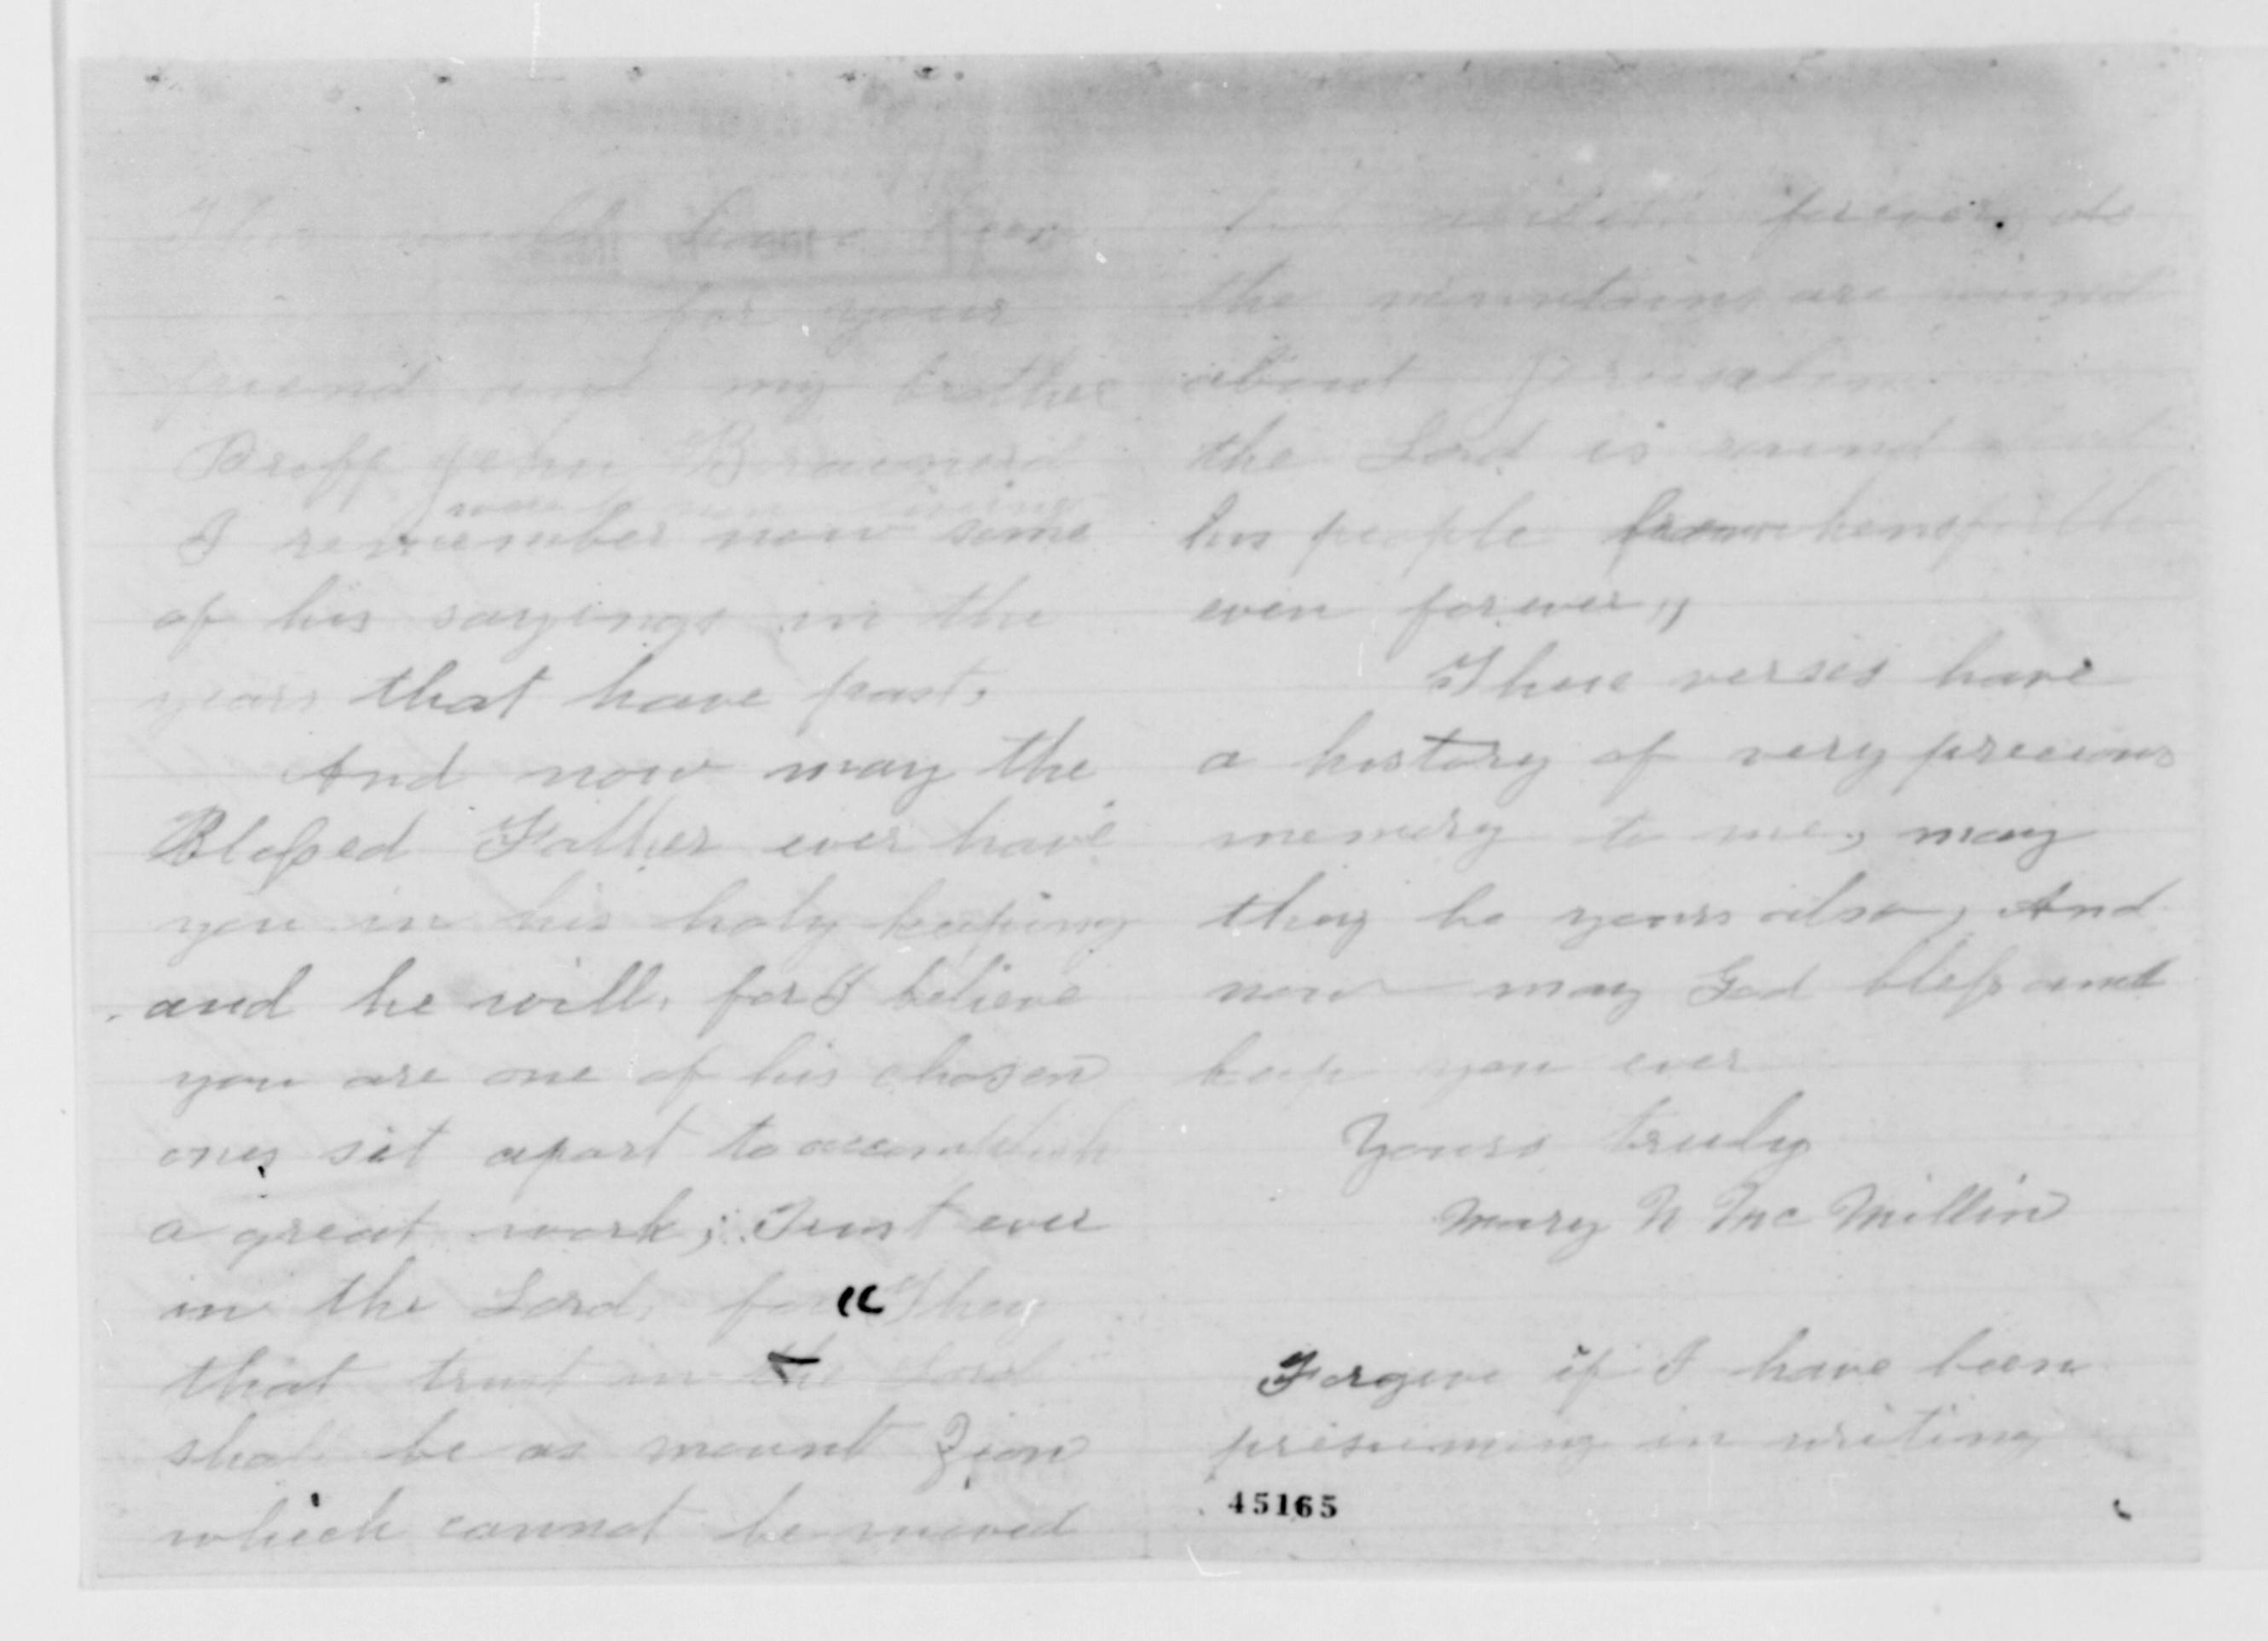 would have been
for your
friend and my brother
Proff John Brainerd
were now living
I remember now some
of his sayings in the
years that have past,
And now may the
Blessed Father ever have
you in his holy keeping
and he will, for I believe
you are one of his chosen
ones set apart to accomplish
a great work; Trust ever
in the Lord, for "They
that trust in the Lord
shall be as mount Zion
which cannot be moved
but forever, as
the mountains are round
about Jerusalem
the Lord is round about
his people from henceforth
even forever,"
These verses have
a history of very precious
memory to me, may
they be yours also, And
now may God bless and
keep you ever
Yours truly
Mary N McMillin
Forgive if I have been
presuming in writing
45165